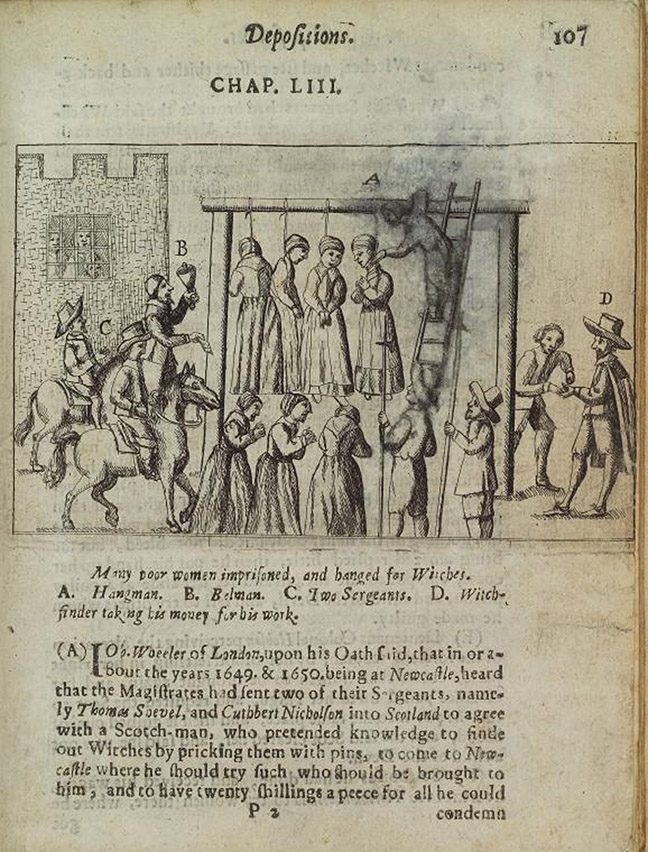 Depoſitions. 107
CHAP. LIII.
A
B
C
D
Many poor women impriſoned, and hanged for Witches.
A. Hangman. B. Belman. C. Two Sergeants. D. Witch-
finder taking his money for his work.
(A) JOhn Wheeler of London, upon his Oath ſaid, that in or a-
bout the years 1649. & 1650. being at Newcaſtle, heard
that the Magiſtrates had ſent two of their Sergeants, name-
ly Thomas Shevel, and Cuthbert Nicholſon into Scotland to agree
with a Scotch-man, who pretended knowledge to finde
out Witches by pricking them with pins, to come to New-
caſtle where he ſhould try ſuch who ſhould be brought to
him, and to have twenty ſhillings a peece for all he could
P 2 condemn